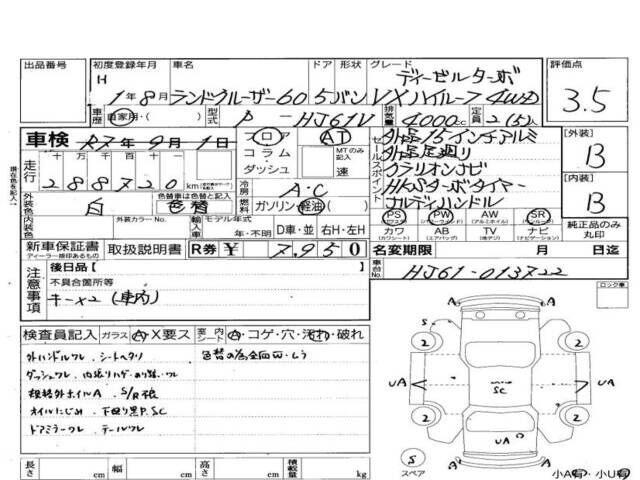 出品番号 初度登録年月 車名 ドア 形状 グレード 評価点
H ディーゼルターボ
1年8月 ランドクルーザー60 5 バン VXハイルーフ 4WD 3.5
車歴 自家用・( ) 型式 P - HJ61V 排気量 4000cc 定員 2(5)人
車検 R7年9月1日 フロア AT 外品15インチアルミ 【外装】
コラム MTのみ記入 外品足廻り B
走行 十万 万 千 百 十 一 ダッシュ 速 セールスポイント クラリオンナビ
288720 km 冷房 A・C 【内装】
外装色 白 色替車は色替と記入 色替 燃料 ガソリン・軽油・( ) ナルディハンドル B
内装色 外装カラーNo. 輸入車 モデル年式 年・不明 D車・並 右H・左H PS PW AW SR 純正品のみ丸印
カワ AB TV ナビ
新車保証書 取扱説明書 R券 ¥ 7,950 名変期限 月 日迄
ディーラー捺印あるもの
注意事項 後日品【 】 車台No. HJ61-013722
不具合箇所等 ロック車
キー×2 (車内)
検査員記入 ガラス A・X要ス 室内シート A・コゲ・穴・汚れ・破れ
外ハンドルワレ、シートヘタリ 色替の為全面W・ムラ
ダッシュワレ、
規格外ホイルA S/R不良
オイルにじみ、下廻り黒P.SC
ドアミラーワレ、テールワレ
A A
S
2 2
UA SC UA
2 2
UA
S A A
スペア
小A有・小U有
長さ cm 幅 cm 高さ cm 積載量 kg